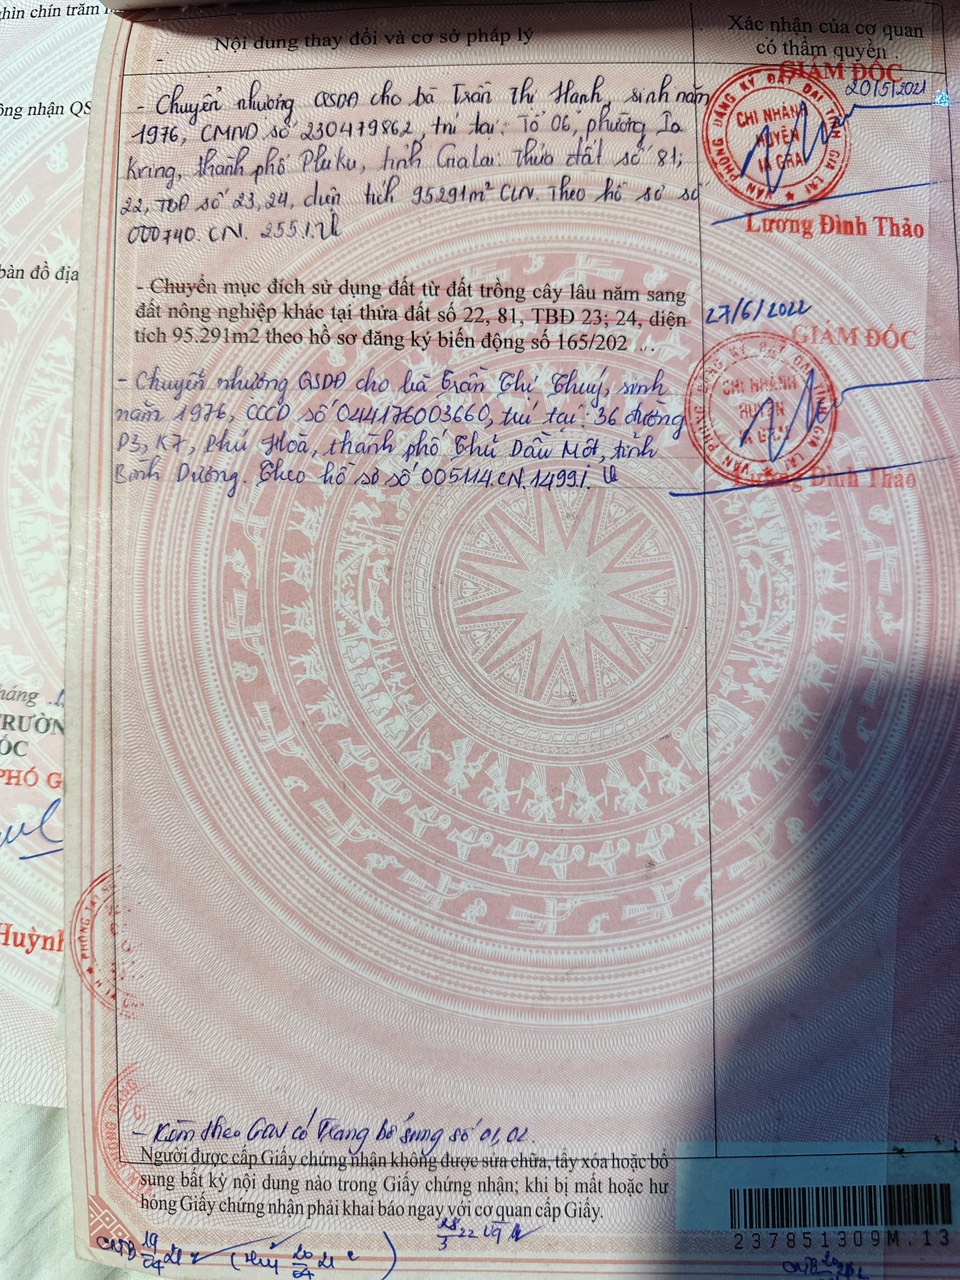 ghìn chín trăm
ông nhận QS
bản đồ địa
háng
TRƯỜN
ỐC
PHÓ G
Huỳnh
Nội dung thay đổi và cơ sở pháp lý
Xác nhận của cơ quan
có thẩm quyền
- Chuyển nhượng QSDĐ cho bà Trần Thị Hạnh, sinh năm
1976, CMND số 230479862, trú tại: Tổ 06, phường Ia
Kring, thành phố Pleiku, tỉnh Gia Lai: Thửa đất số 81;
22, TBĐ số 23, 24, diện tích 95291m² CLN. Theo hồ sơ số
000740.CN.255
GIÁM ĐỐC
20/5/2021
VĂN PHÒNG ĐĂNG KÝ ĐẤT ĐAI TỈNH GIA LAI
CHI NHÁNH
HUYỆN
IA GRAI
Lương Đình Thảo
- Chuyển mục đích sử dụng đất từ đất trồng cây lâu năm sang
đất nông nghiệp khác tại thửa đất số 22, 81, TBĐ 23; 24, diện
tích 95.291m2 theo hồ sơ đăng ký biến động số 165/202
- Chuyển nhượng QSDĐ cho bà Trần Thị Thuý, sinh
năm 1976, CCCD số 044176003660, trú tại: 36 đường
D3, K7, Phú Hoà, thành phố Thủ Dầu Một, tỉnh
Bình Dương. Theo hồ sơ số 005114.CN.1499
27/6/2022
GIÁM ĐỐC
VĂN PHÒNG ĐĂNG KÝ ĐẤT ĐAI TỈNH GIA LAI
CHI NHÁNH
HUYỆN
IA GRAI
Lương Đình Thảo
- Kèm theo GCN có Trang bổ sung số 01, 02.
Người được cấp Giấy chứng nhận không được sửa chữa, tẩy xóa hoặc bổ
sung bất kỳ nội dung nào trong Giấy chứng nhận; khi bị mất hoặc hư
hỏng Giấy chứng nhận phải khai báo ngay với cơ quan cấp Giấy.
237851309M.13